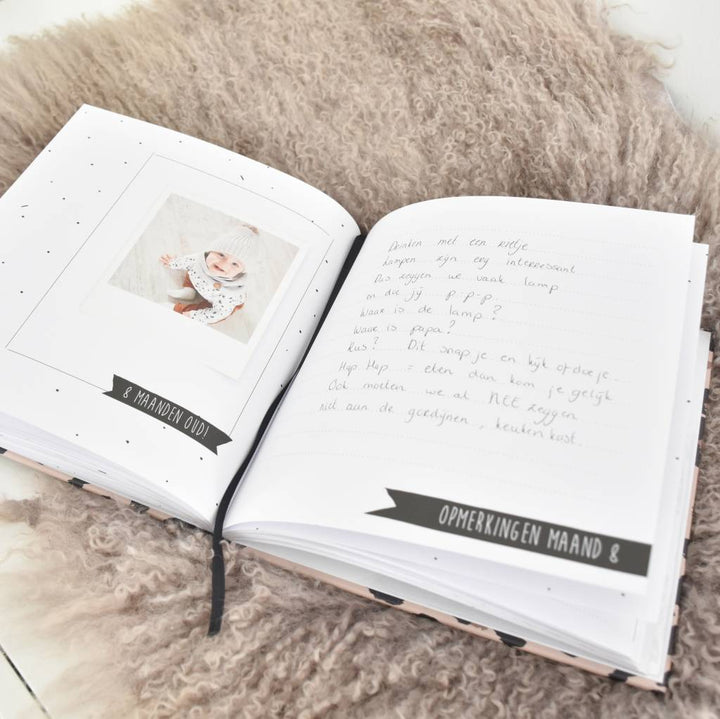 8 MAANDEN OUD!
Drinken met een rietje
Lampen zijn erg interressant
Dus zeggen we vaak lamp
en doe jij p p p.
Waar is de lamp?
Waar is papa?
Kus? Dit snap je en kijk of doe je
Hap Hap = eten dan kom je gelijk
Ook moeten we al NEE zeggen
niet aan de gordijnen, keukenkast.
OPMERKINGEN MAAND 8